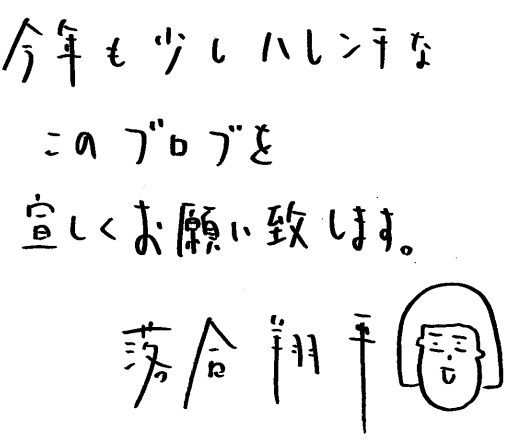 今年も少しハレンチな
このブログを
宜しくお願い致します。
落合翔平